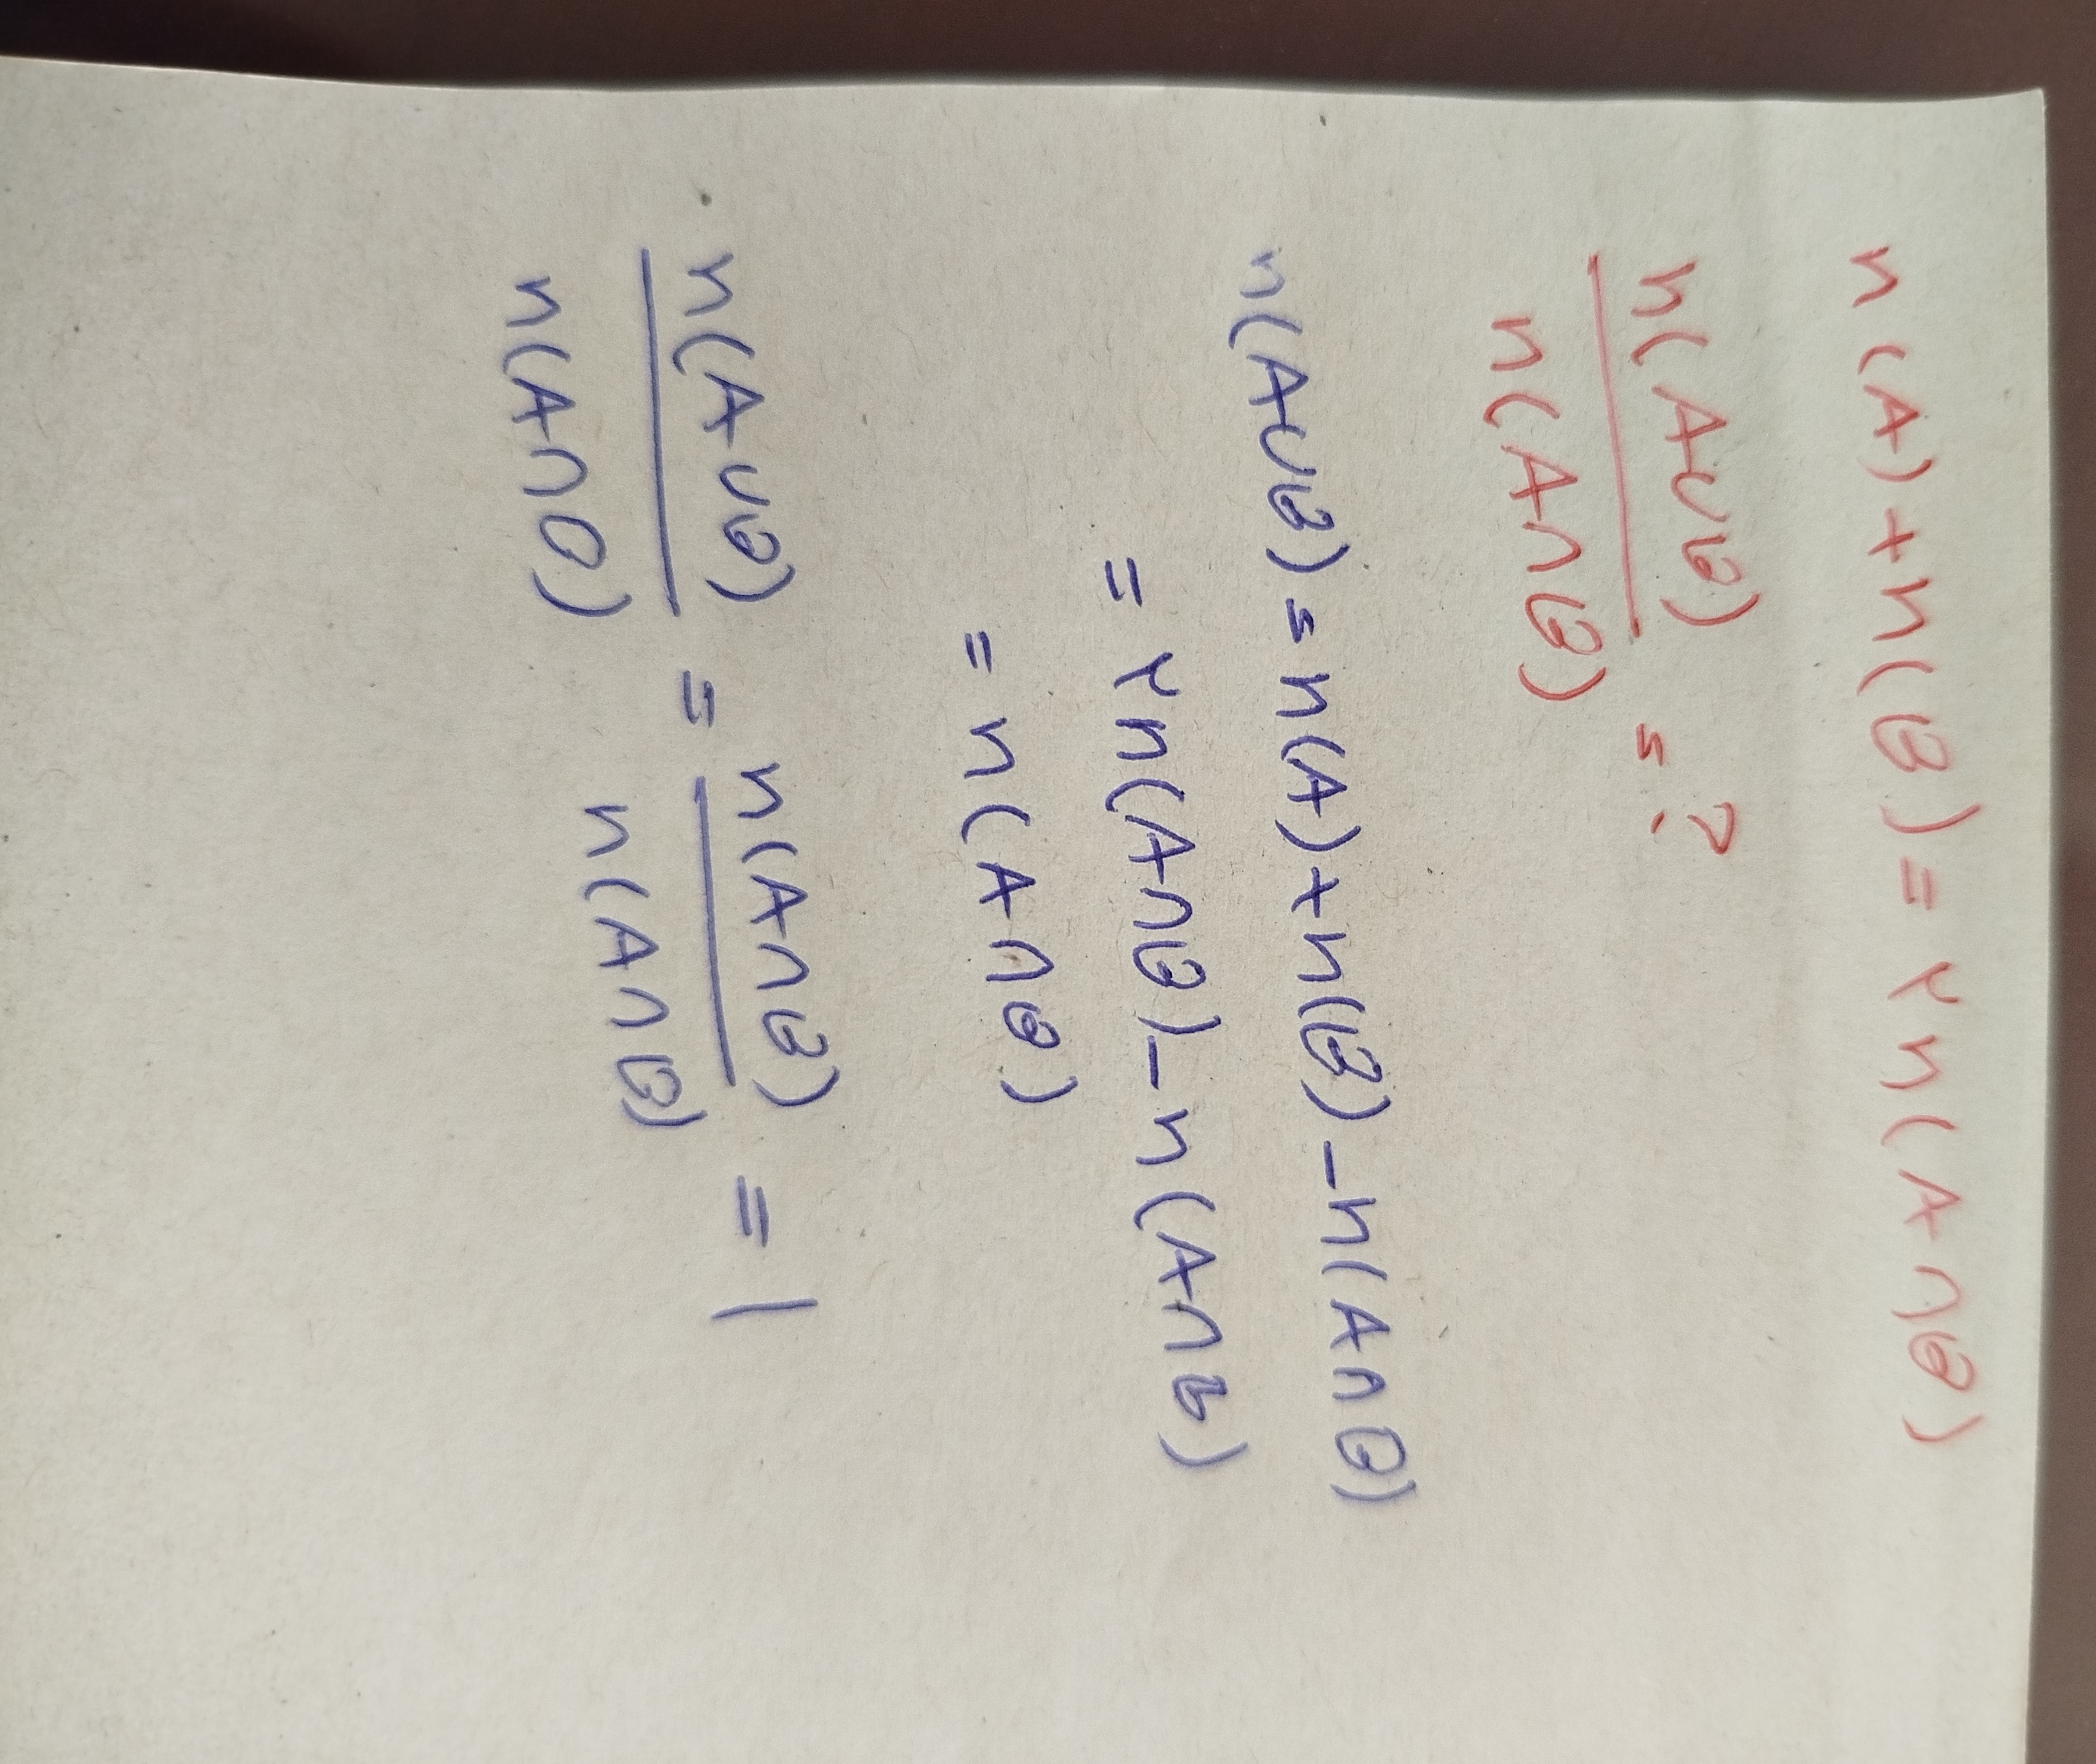 n(A)+n(B)=۲n(A∩B)
n(A∪B)
n(A∩B) = ?
n(A∪B) = n(A)+n(B)-n(A∩B)
= ۲n(A∩B)-n(A∩B)
= n(A∩B)
n(A∪B) = n(A∩B) = 1
n(A∩B) n(A∩B)